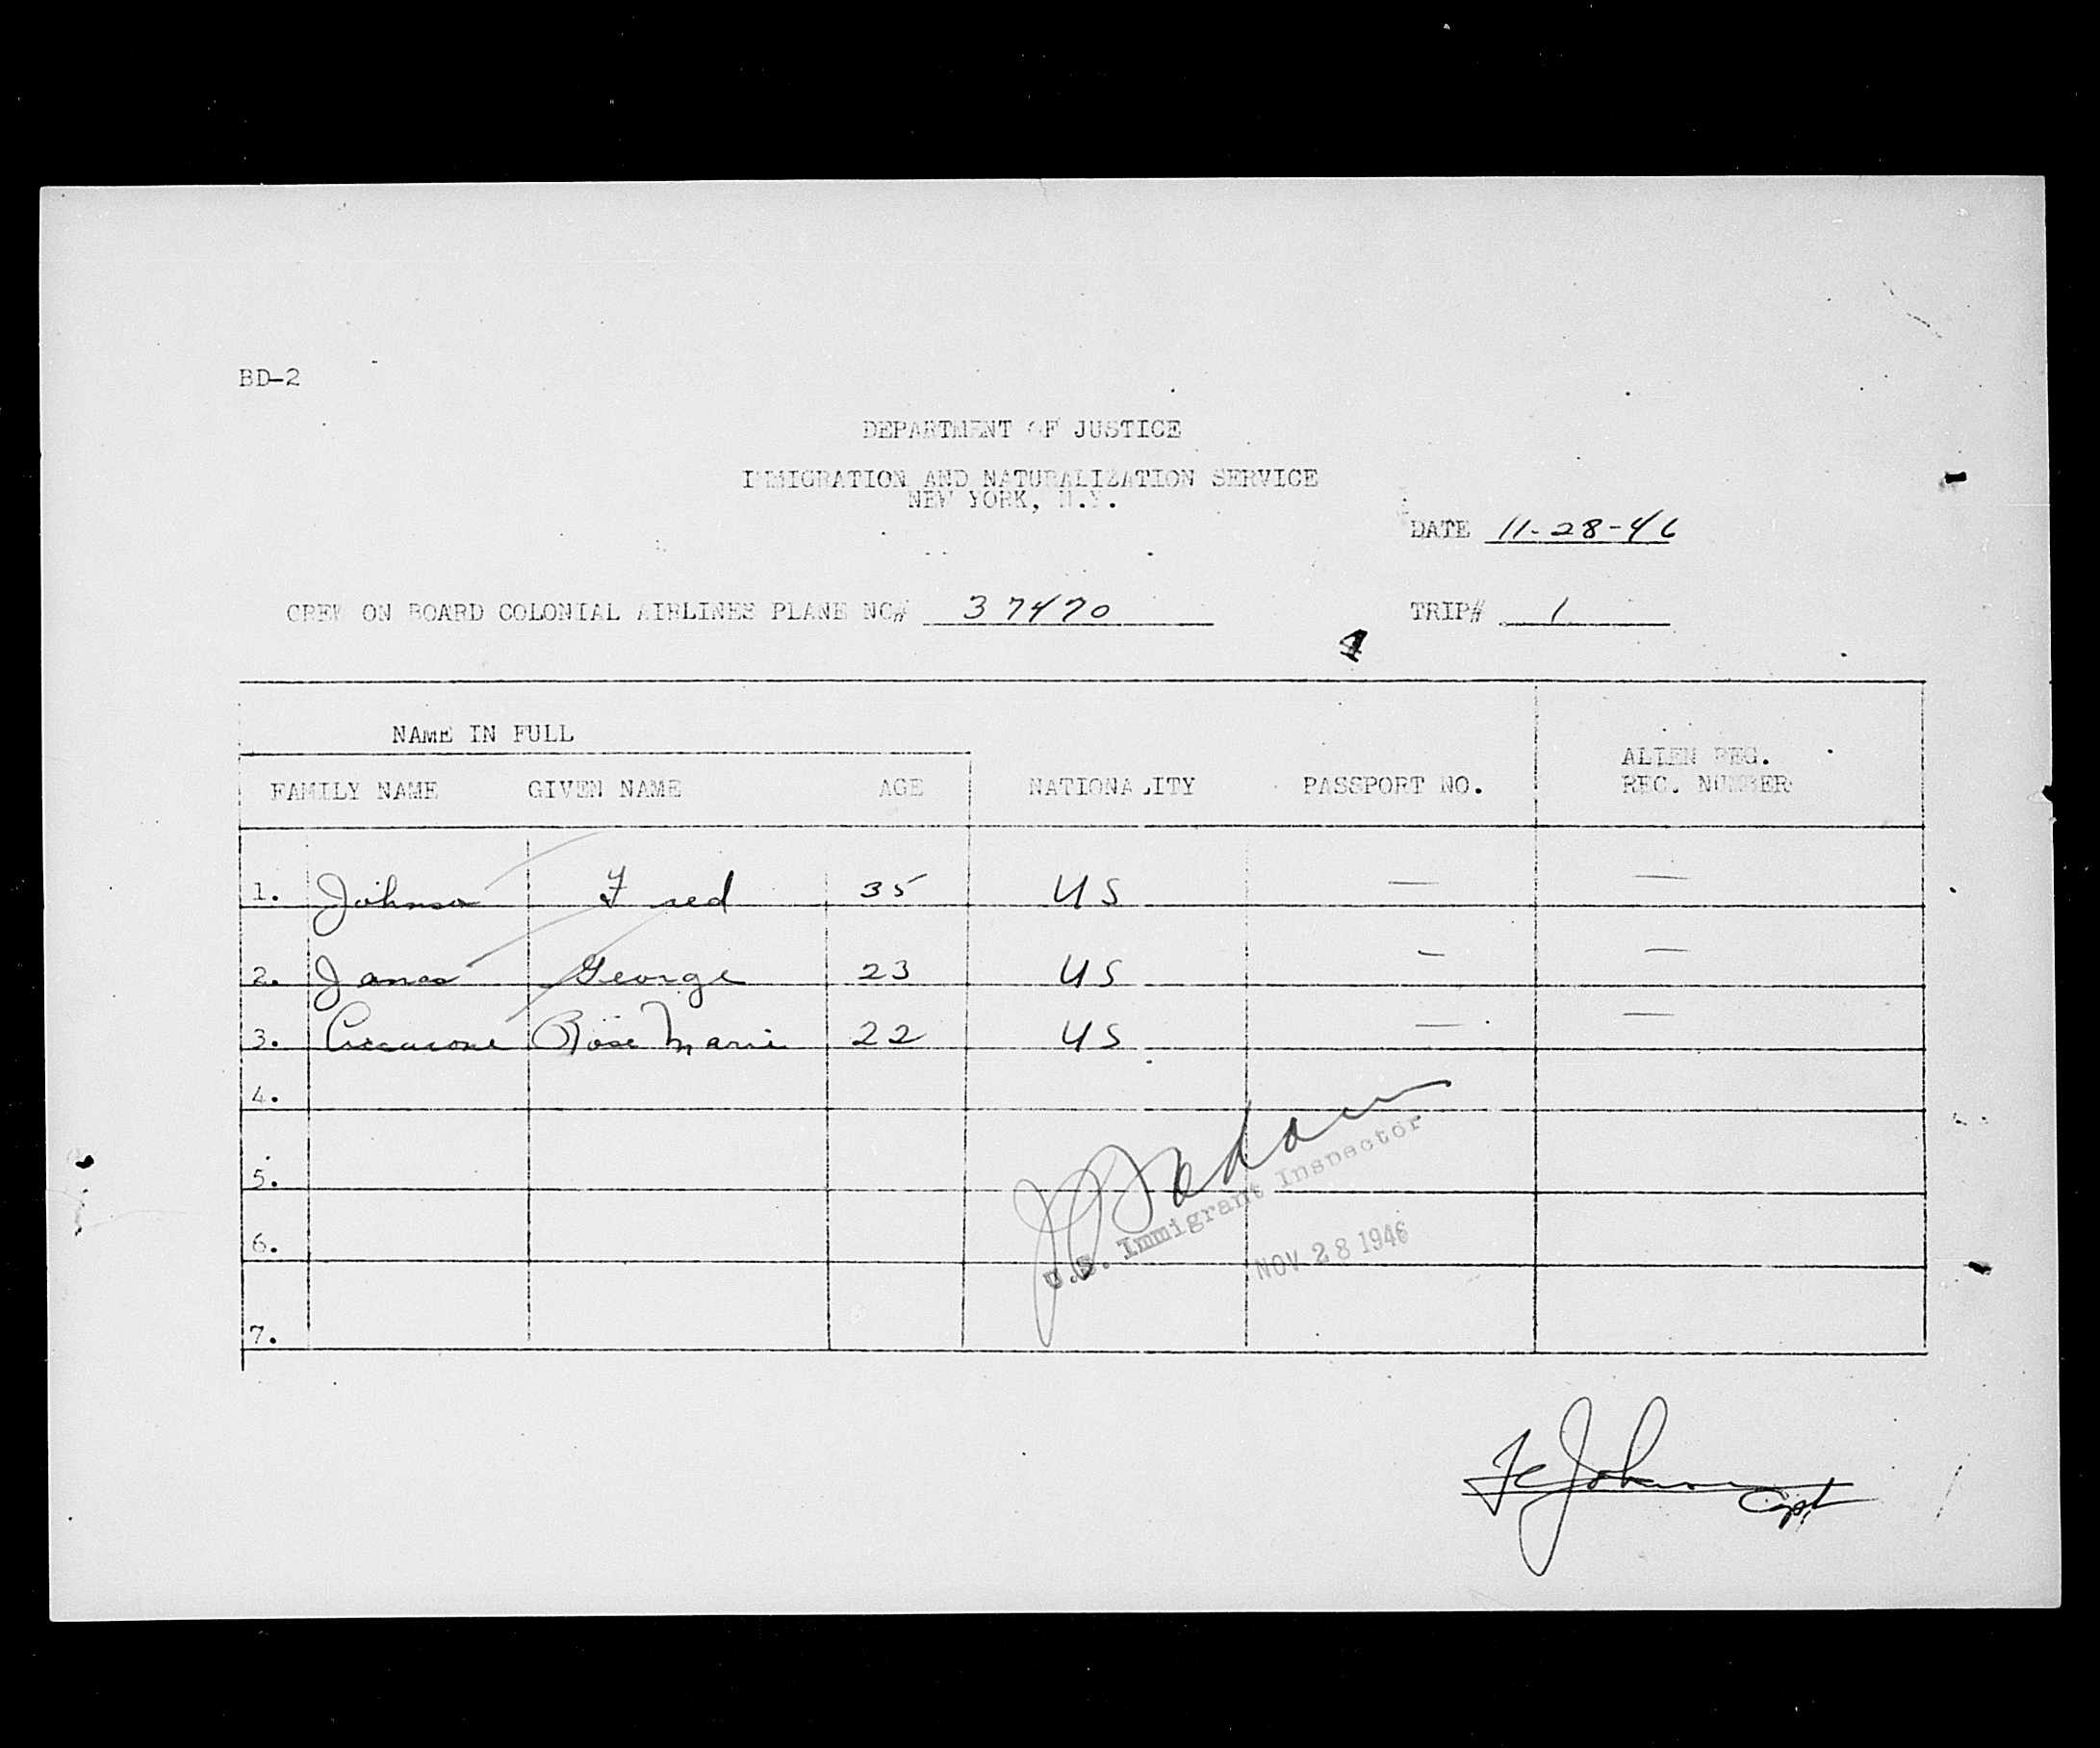 BD-2
DEPARTMENT OF JUSTICE
IMMIGRATION AND NATURALIZATION SERVICE
NEW YORK, N.Y.
DATE 11-28-46
CREW ON BOARD COLONIAL AIRLINES PLANE NO# 37470 TRIP# 1
NAME IN FULL
FAMILY NAME GIVEN NAME AGE NATIONALITY PASSPORT NO. ALIEN REG. REC. NUMBER
1. Johnson Fred 35 US — —
2. George 23 US — —
3. Rose Marie 22 US — —
4.
5.
6.
7.
U.S. Immigrant Inspector
NOV 28 1946
Johnson Capt